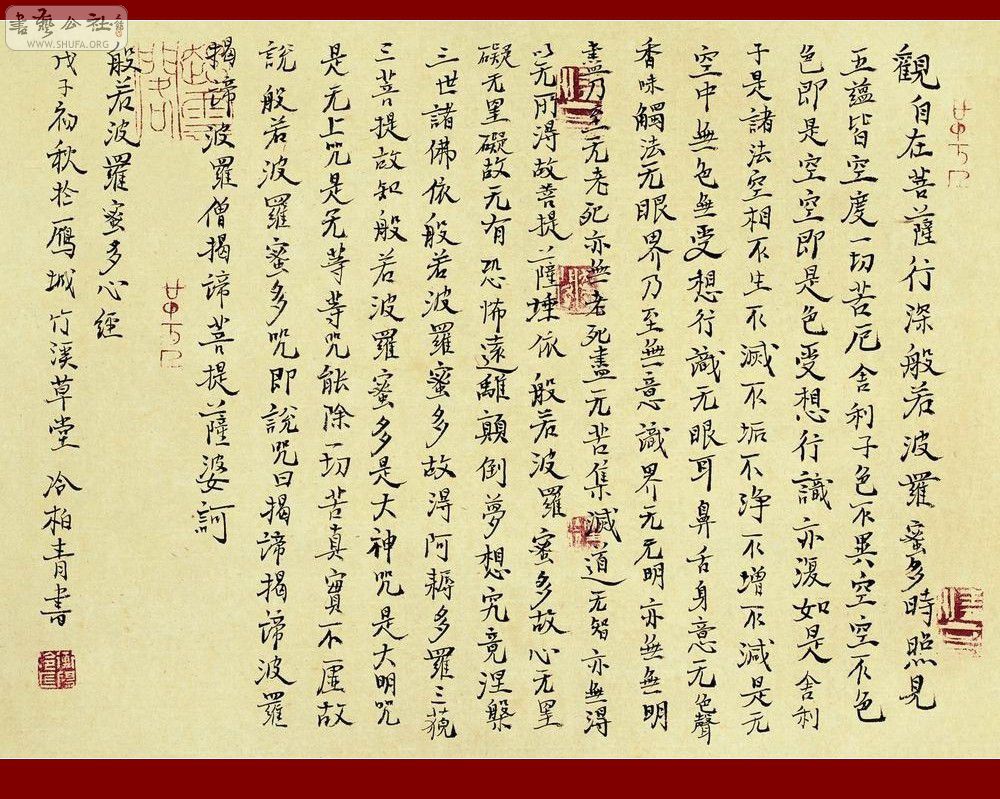 書藝公社
WWW.SHUFA.ORG
觀自在菩薩行深般若波羅蜜多時照見
五蘊皆空度一切苦厄舍利子色不異空空不色
色即是空空即是色受想行識亦復如是舍利
子是諸法空相不生不滅不垢不淨不增不減是无
空中無色無受想行識无眼耳鼻舌身意无色聲
香味觸法无眼界乃至無意識界无无明亦無無明
盡乃至无老死亦無老死盡无苦集滅道无智亦無得
以无所得故菩提薩埵依般若波羅蜜多故心无罣
礙无罣礙故无有恐怖遠離顛倒夢想究竟涅槃
三世諸佛依般若波羅蜜多故得阿耨多羅三藐
三菩提故知般若波羅蜜多是大神咒是大明咒
是无上咒是无等等咒能除一切苦真實不虛故
說般若波羅蜜多咒即說咒曰揭諦揭諦波羅
揭諦波羅僧揭諦菩提薩婆訶
般若波羅蜜多心經
戊子初秋於雁城竹溪草堂冷柏青書